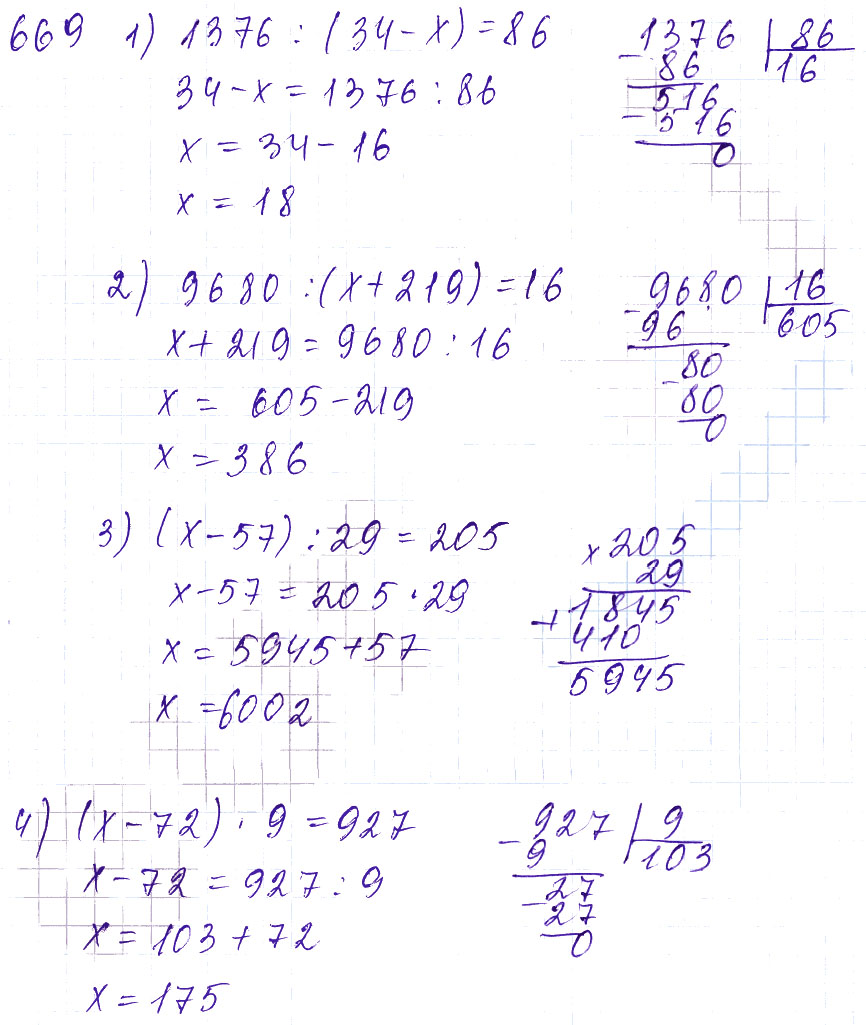 669 1) 1376 : (34 - x) = 86
34 - x = 1376 : 86
x = 34 - 16
x = 18
1376 | 86
- 86 16
516
- 516
0
2) 9680 : (x + 219) = 16
x + 219 = 9680 : 16
x = 605 - 219
x = 386
- 9680 | 16
96 605
80
- 80
0
3) (x - 57) : 29 = 205
x - 57 = 205 · 29
x = 5945 + 57
x = 6002
x 205
29
1845
+ 410
5945
4) (x - 72) · 9 = 927
x - 72 = 927 : 9
x = 103 + 72
x = 175
- 927 | 9
9 103
- 27
27
0